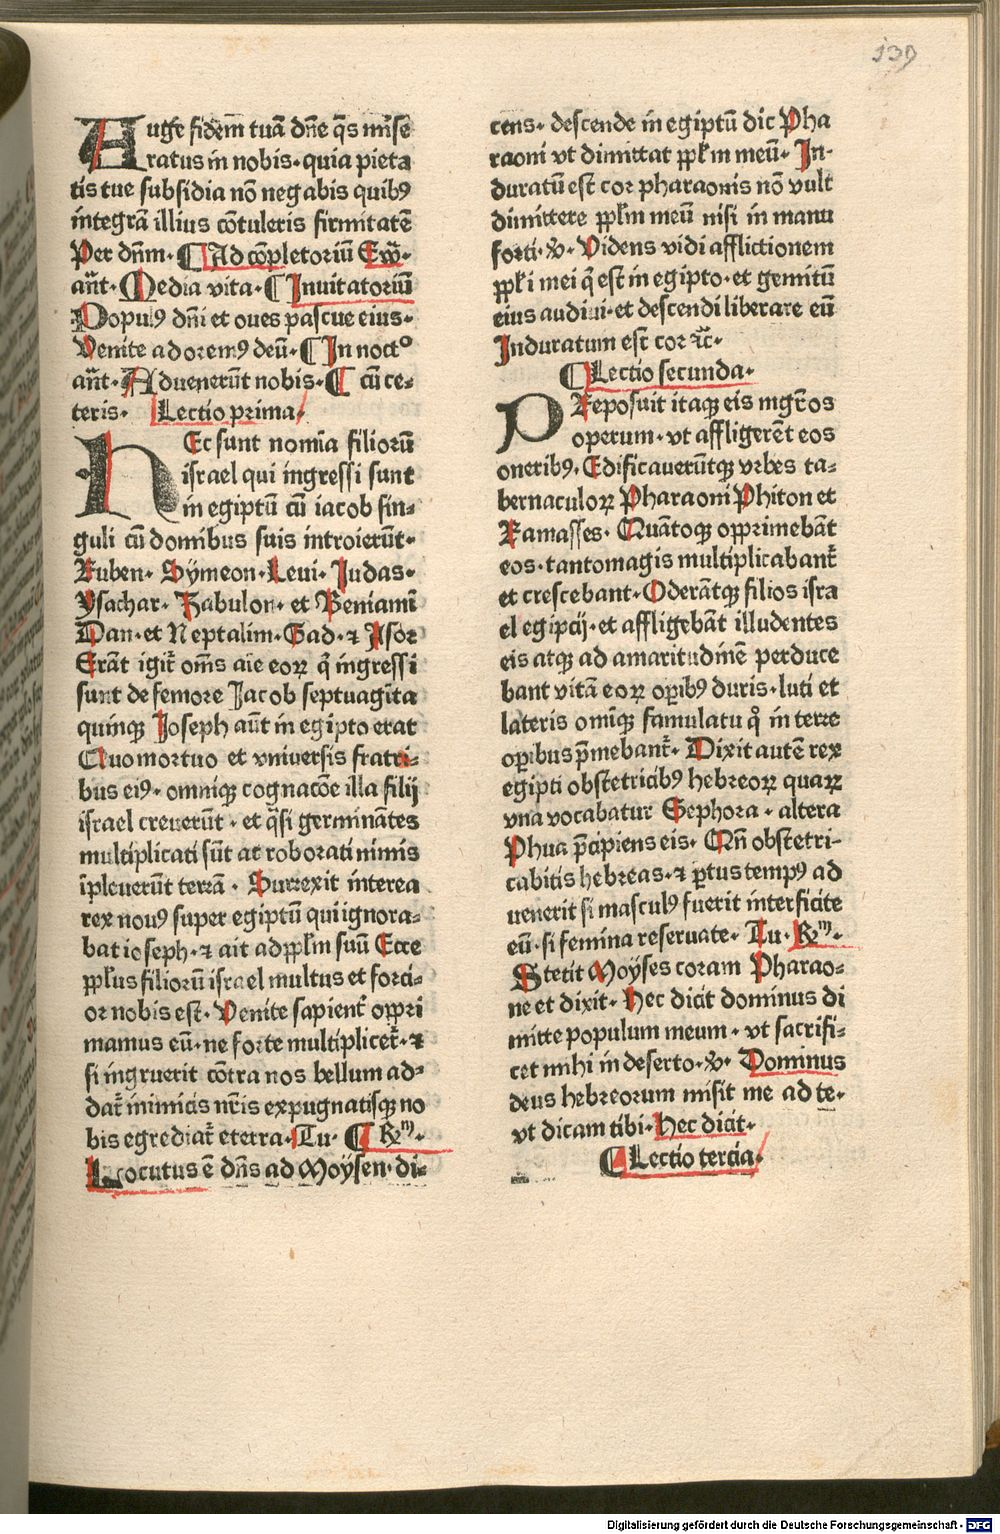 139
Auge fidem tuā dn̄e q̄s mise
ratus in nobis· quia pieta
tis tue subsidia nō negabis quibꝰ
integrā illius cōtuleris firmitatē
Per dn̄m· ¶ Ad cōpletoriū Ew̄·
añt· Media vita· ¶ Inuitatoriū
Popuꝰ dn̄i et oues pascue eius·
Venite adoremꝰ deū· ¶ In noctᵒ
añt· Aduenerūt nobis· ¶ cū ce⸗
teris· Lectio prima·
HEc sunt nomīa filiorū
israel qui ingressi sunt
in egiptū cū iacob sin⸗
guli cū domibus suis introierūt·
Ruben· Sÿmeon· Leui· Judas·
Ysachar· Zabulon· et Beniamī
Dan· et Neptalim· Gad· ⁊ Asor
Erāt igit̄ om̄s aīe eoꝝ q̄ ingressi
sunt de femore Jacob septuagīta
quinqꝫ Joseph aūt in egipto erat
Quo mortuo et vniuersis fratri⸗
bus eiꝰ· omniqꝫ cognacōe illa filij
israel creuerūt· et q̄si germinātes
multiplicati sūt ac roborati nimis
īpleuerūt terrā· Surrexit interea
rex nouꝰ super egiptū qui ignora⸗
bat ioseph· ⁊ ait ad pp̄lm suū Ecce
pp̄lus filiorū israel multus et forci⸗
or nobis est· Venite sapient̄ oppri
mamus eū· ne forte multiplicet̄· ⁊
si ingruerit cōtra nos bellum ad⸗
dat̄ inimicis nr̄is expugnatisqꝫ no
bis egrediat̄ e terra· Tu· ¶ Rm̄·
Locutus ē dn̄s ad Moÿsen· di⸗
cens· descende in egiptū dic Pha
raoni vt dimittat pp̄lm meū· In⸗
duratū est cor pharaonis nō vult
dimittere pp̄lm meū nisi in manu
forti· ꝟ· Videns vidi afflictionem
pp̄li mei q̄ est in egipto· et gemitū
eius audiui· et descendi liberare eū
Induratum est cor ⁊c̄·
¶ Lectio secunda·
PReposuit itaqꝫ eis mgr̄os
operum· vt affligerēt eos
oneribꝰ· Edificauerūtqꝫ vrbes ta⸗
bernaculoꝝ Pharaoni Phiton et
Ramasses· Quātoqꝫ opprimebāt
eos· tantomagis multiplicabant̄
et crescebant· Oderātqꝫ filios isra
el egipcij· et affligebāt illudentes
eis atqꝫ ad amaritudinē perduce
bant vitā eoꝝ oꝑibꝰ duris· luti et
lateris omīqꝫ famulatu qͦ in terre
oꝑibus p̄mebant̄· Dixit autē rex
egipti obstetricibꝰ hebreoꝝ quaꝝ
vna vocabatur Sephora· altera
Phua p̄cipiens eis· Qn̄ obstetri⸗
cabitis hebreas· ⁊ ꝑtus tempꝰ ad
uenerit si masculꝰ fuerit interficite
eū· si femina reseruate· Tu· Rm̄·
Stetit Moÿses coram Pharao⸗
ne et dixit· Hec dicit dominus di
mitte populum meum· vt sacrifi⸗
cet mihi in deserto· ꝟ· Dominus
deus hebreorum misit me ad te·
vt dicam tibi· Hec dicit·
¶ Lectio tercia·
Digitalisierung gefördert durch die Deutsche Forschungsgemeinschaft - DFG